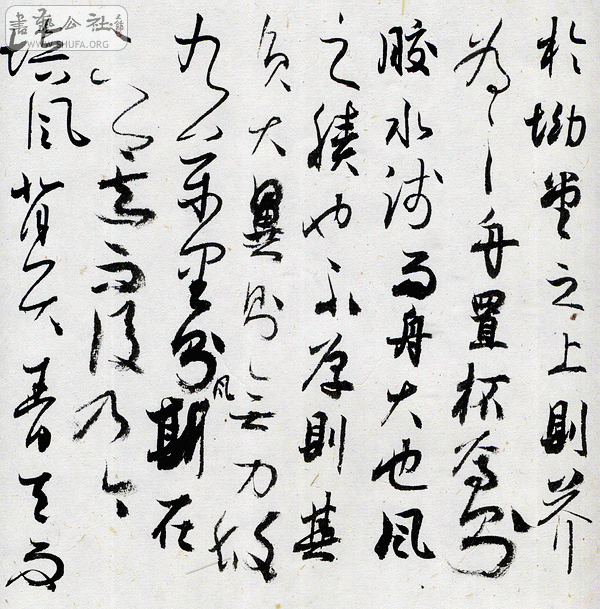 書藝公社
WWW.SHUFA.ORG
於坳堂之上則芥
為之舟置杯焉則
膠水淺而舟大也風
之積也不厚則其
負大翼則無力故
九萬里則風斯在
下矣而後乃今
培風背負青天而